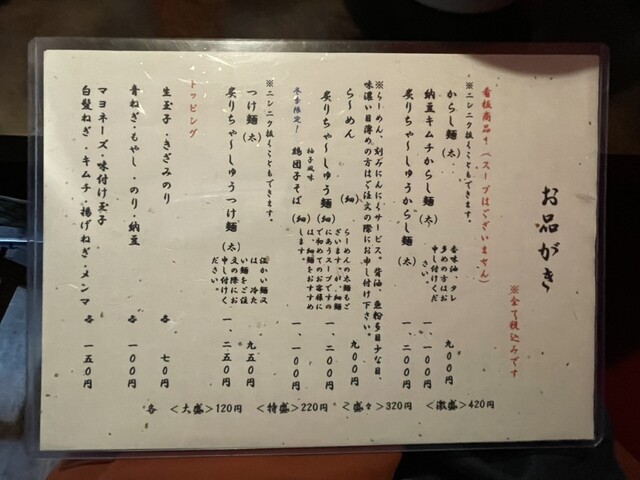 お品がき
※全て税込みです
看板商品!(スープはございません)
※ニンニク抜くこともできます。
からし麺(太) 九〇〇円
香味油、タレ
多めの方はお
申し付けくだ
さい。
納豆キムチからし麺(太) 一、一〇〇円
炙りちゃ～しゅうからし麺(太) 一、二〇〇円
※らーめん、刻みにんにくサービス。背油、魚粉多目少な目、
味濃い目薄めの方はご注文の際にお申し付け下さい。
ら～めん(細) 九〇〇円
らーめんの太麺もご
ざいますが、細麺
にあうスープですの
で初めてのお客様に
は、細麺をおすすめ
します。
炙りちゃ～しゅう麺(細) 一、二〇〇円
冬季限定!
柚子風味
鶏団子そば(細) 一、一〇〇円
※ニンニク抜くこともできます。
つけ麺(太) 九五〇円
温かい麺又
は、冷た
い麺をご注
文の際にお
申し付けく
ださい。
炙りちゃ～しゅうつけ麺(太) 一、二五〇円
トッピング
生玉子・きざみのり 各 七〇円
青ねぎ・もやし・のり・納豆 各 一〇〇円
マヨネーズ・味付け玉子
白髪ねぎ・キムチ・揚げねぎ・メンマ 各 一五〇円
各 <大盛>120円 <特盛>220円 <盛々>320円 <激盛>420円